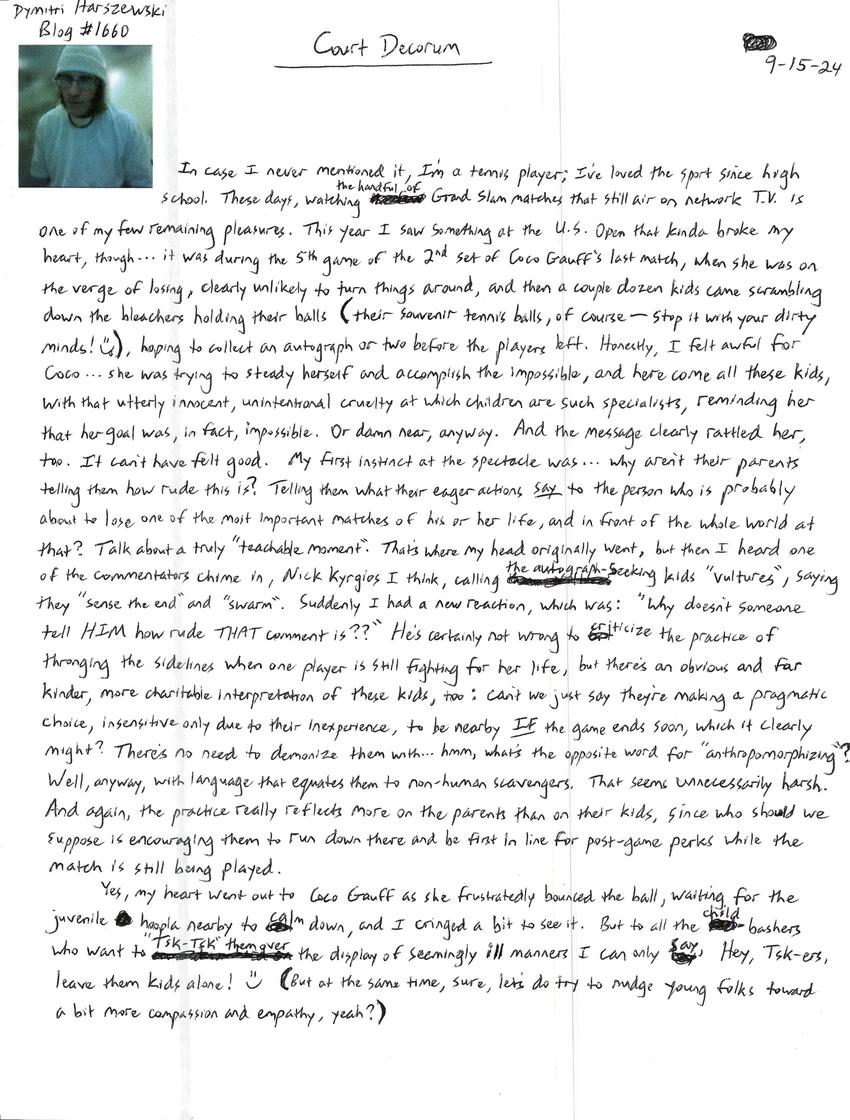 Dymitri Harszewski
Blog #1660
Court Decorum
9-15-24
In case I never mentioned it, I'm a tennis player; I've loved the sport since high
school. These days, watching the handful of Grand Slam matches that still air on network T.V. is
one of my few remaining pleasures. This year I saw something at the U.S. Open that kinda broke my
heart, though... it was during the 5th game of the 2nd set of Coco Gauff's last match, when she was on
the verge of losing, clearly unlikely to turn things around, and then a couple dozen kids came scrambling
down the bleachers holding their balls (their souvenir tennis balls, of course – stop it with your dirty
minds! ☺), hoping to collect an autograph or two before the players left. Honestly, I felt awful for
Coco... she was trying to steady herself and accomplish the impossible, and here come all these kids,
with that utterly innocent, unintentional cruelty at which children are such specialists, reminding her
that her goal was, in fact, impossible. Or damn near, anyway. And the message clearly rattled her,
too. It can't have felt good. My first instinct at the spectacle was... why aren't their parents
telling them how rude this is? Telling them what their eager actions say to the person who is probably
about to lose one of the most important matches of his or her life, and in front of the whole world at
that? Talk about a truly "teachable moment". That's where my head originally went, but then I heard one
of the commentators chime in, Nick Kyrgios I think, calling the autograph-seeking kids "vultures", saying
they "sense the end" and "swarm". Suddenly I had a new reaction, which was: "Why doesn't someone
tell HIM how rude THAT comment is??" He's certainly not wrong to criticize the practice of
thronging the sidelines when one player is still fighting for her life, but there's an obvious and far
kinder, more charitable interpretation of these kids, too: can't we just say they're making a pragmatic
choice, insensitive only due to their inexperience, to be nearby IF the game ends soon, which it clearly
might? There's no need to demonize them with... hmm, what's the opposite word for "anthropomorphizing"?
Well, anyway, with language that equates them to non-human scavengers. That seems unnecessarily harsh.
And again, the practice really reflects more on the parents than on their kids, since who should we
suppose is encouraging them to run down there and be first in line for post-game perks while the
match is still being played.
Yes, my heart went out to Coco Gauff as she frustratedly bounced the ball, waiting for the
juvenile hoopla nearby to calm down, and I cringed a bit to see it. But to all the child-bashers
who want to "Tsk-Tsk" them over the display of seemingly ill manners I can only say, Hey, Tsk-ers,
leave them kids alone! ☺ (But at the same time, sure, let's do try to nudge young folks toward
a bit more compassion and empathy, yeah?)